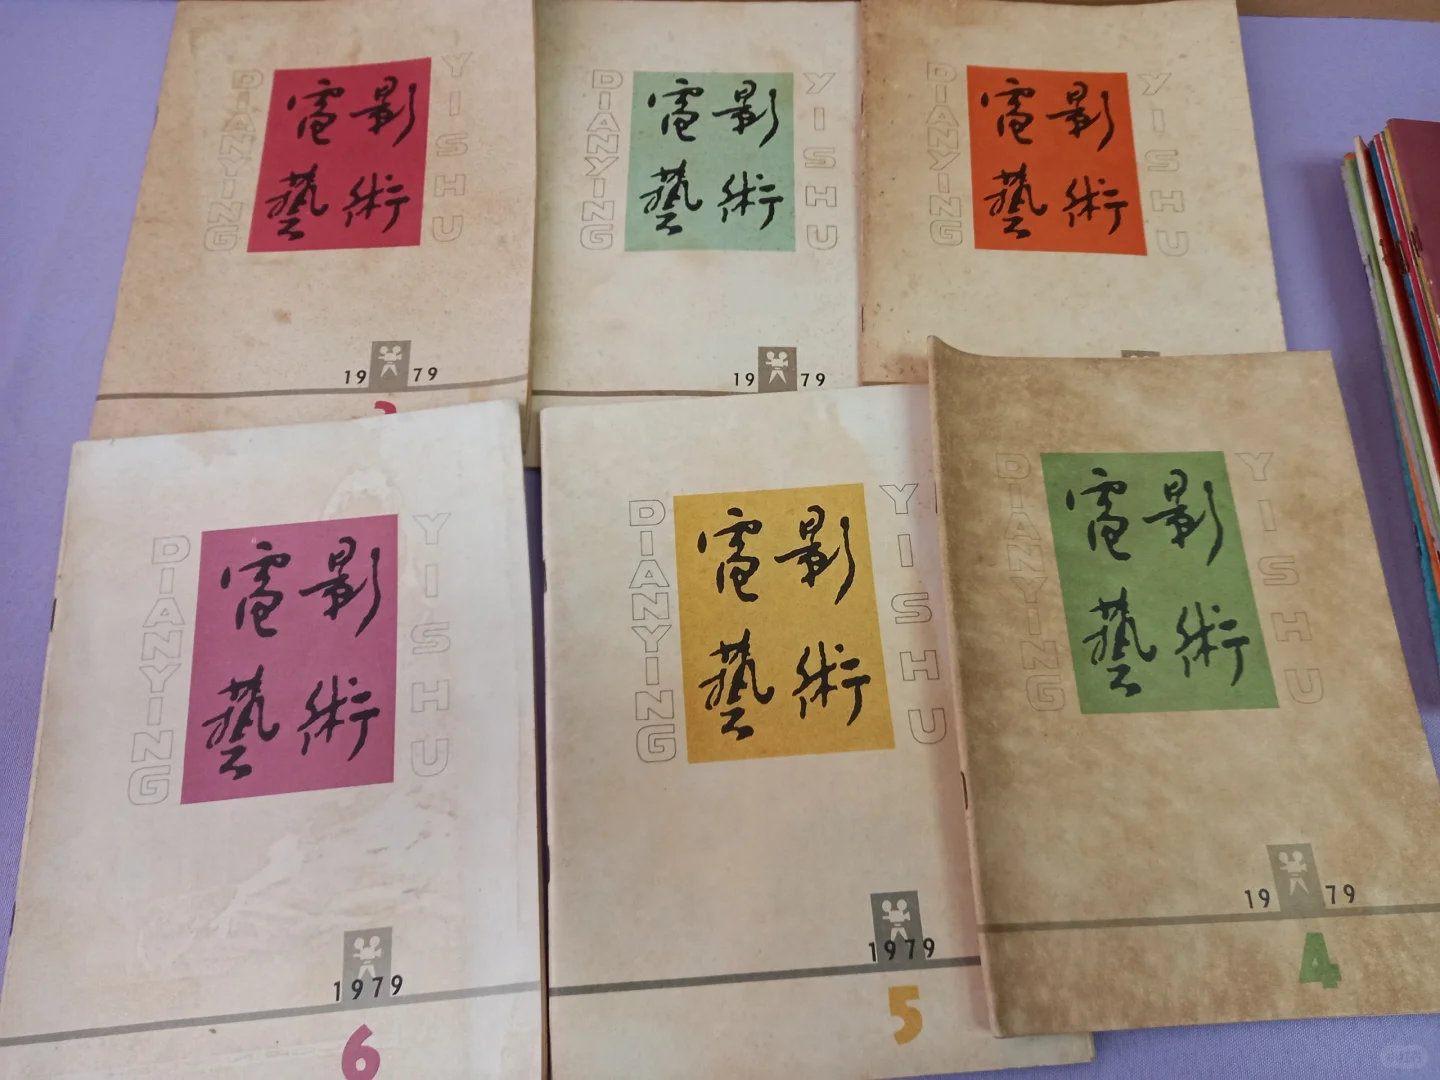 電影
藝術
DIANYING
YISHU
1979
電影
藝術
DIANYING
YISHU
1979
電影
藝術
DIANYING
YISHU
電影
藝術
DIANYING
YISHU
1979
6
電影
藝術
DIANYING
YISHU
1979
5
電影
藝術
DIANYING
YISHU
1979
4